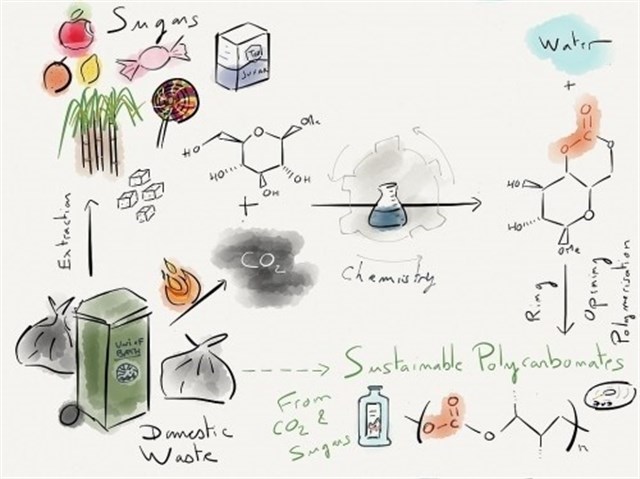 Sugars
Tate
SUGAR
Water
+
OMe
HO
HO
OH
OH
+
Extraction
CO2
Chemistry
O
O
O
O
HO
HO
O
OMe
Ring
Opening
Polymerisation
UNI OF
BATH
Domestic
Waste
Sustainable Polycarbonates
From
CO2 &
Sugars
O
O
C
O
n